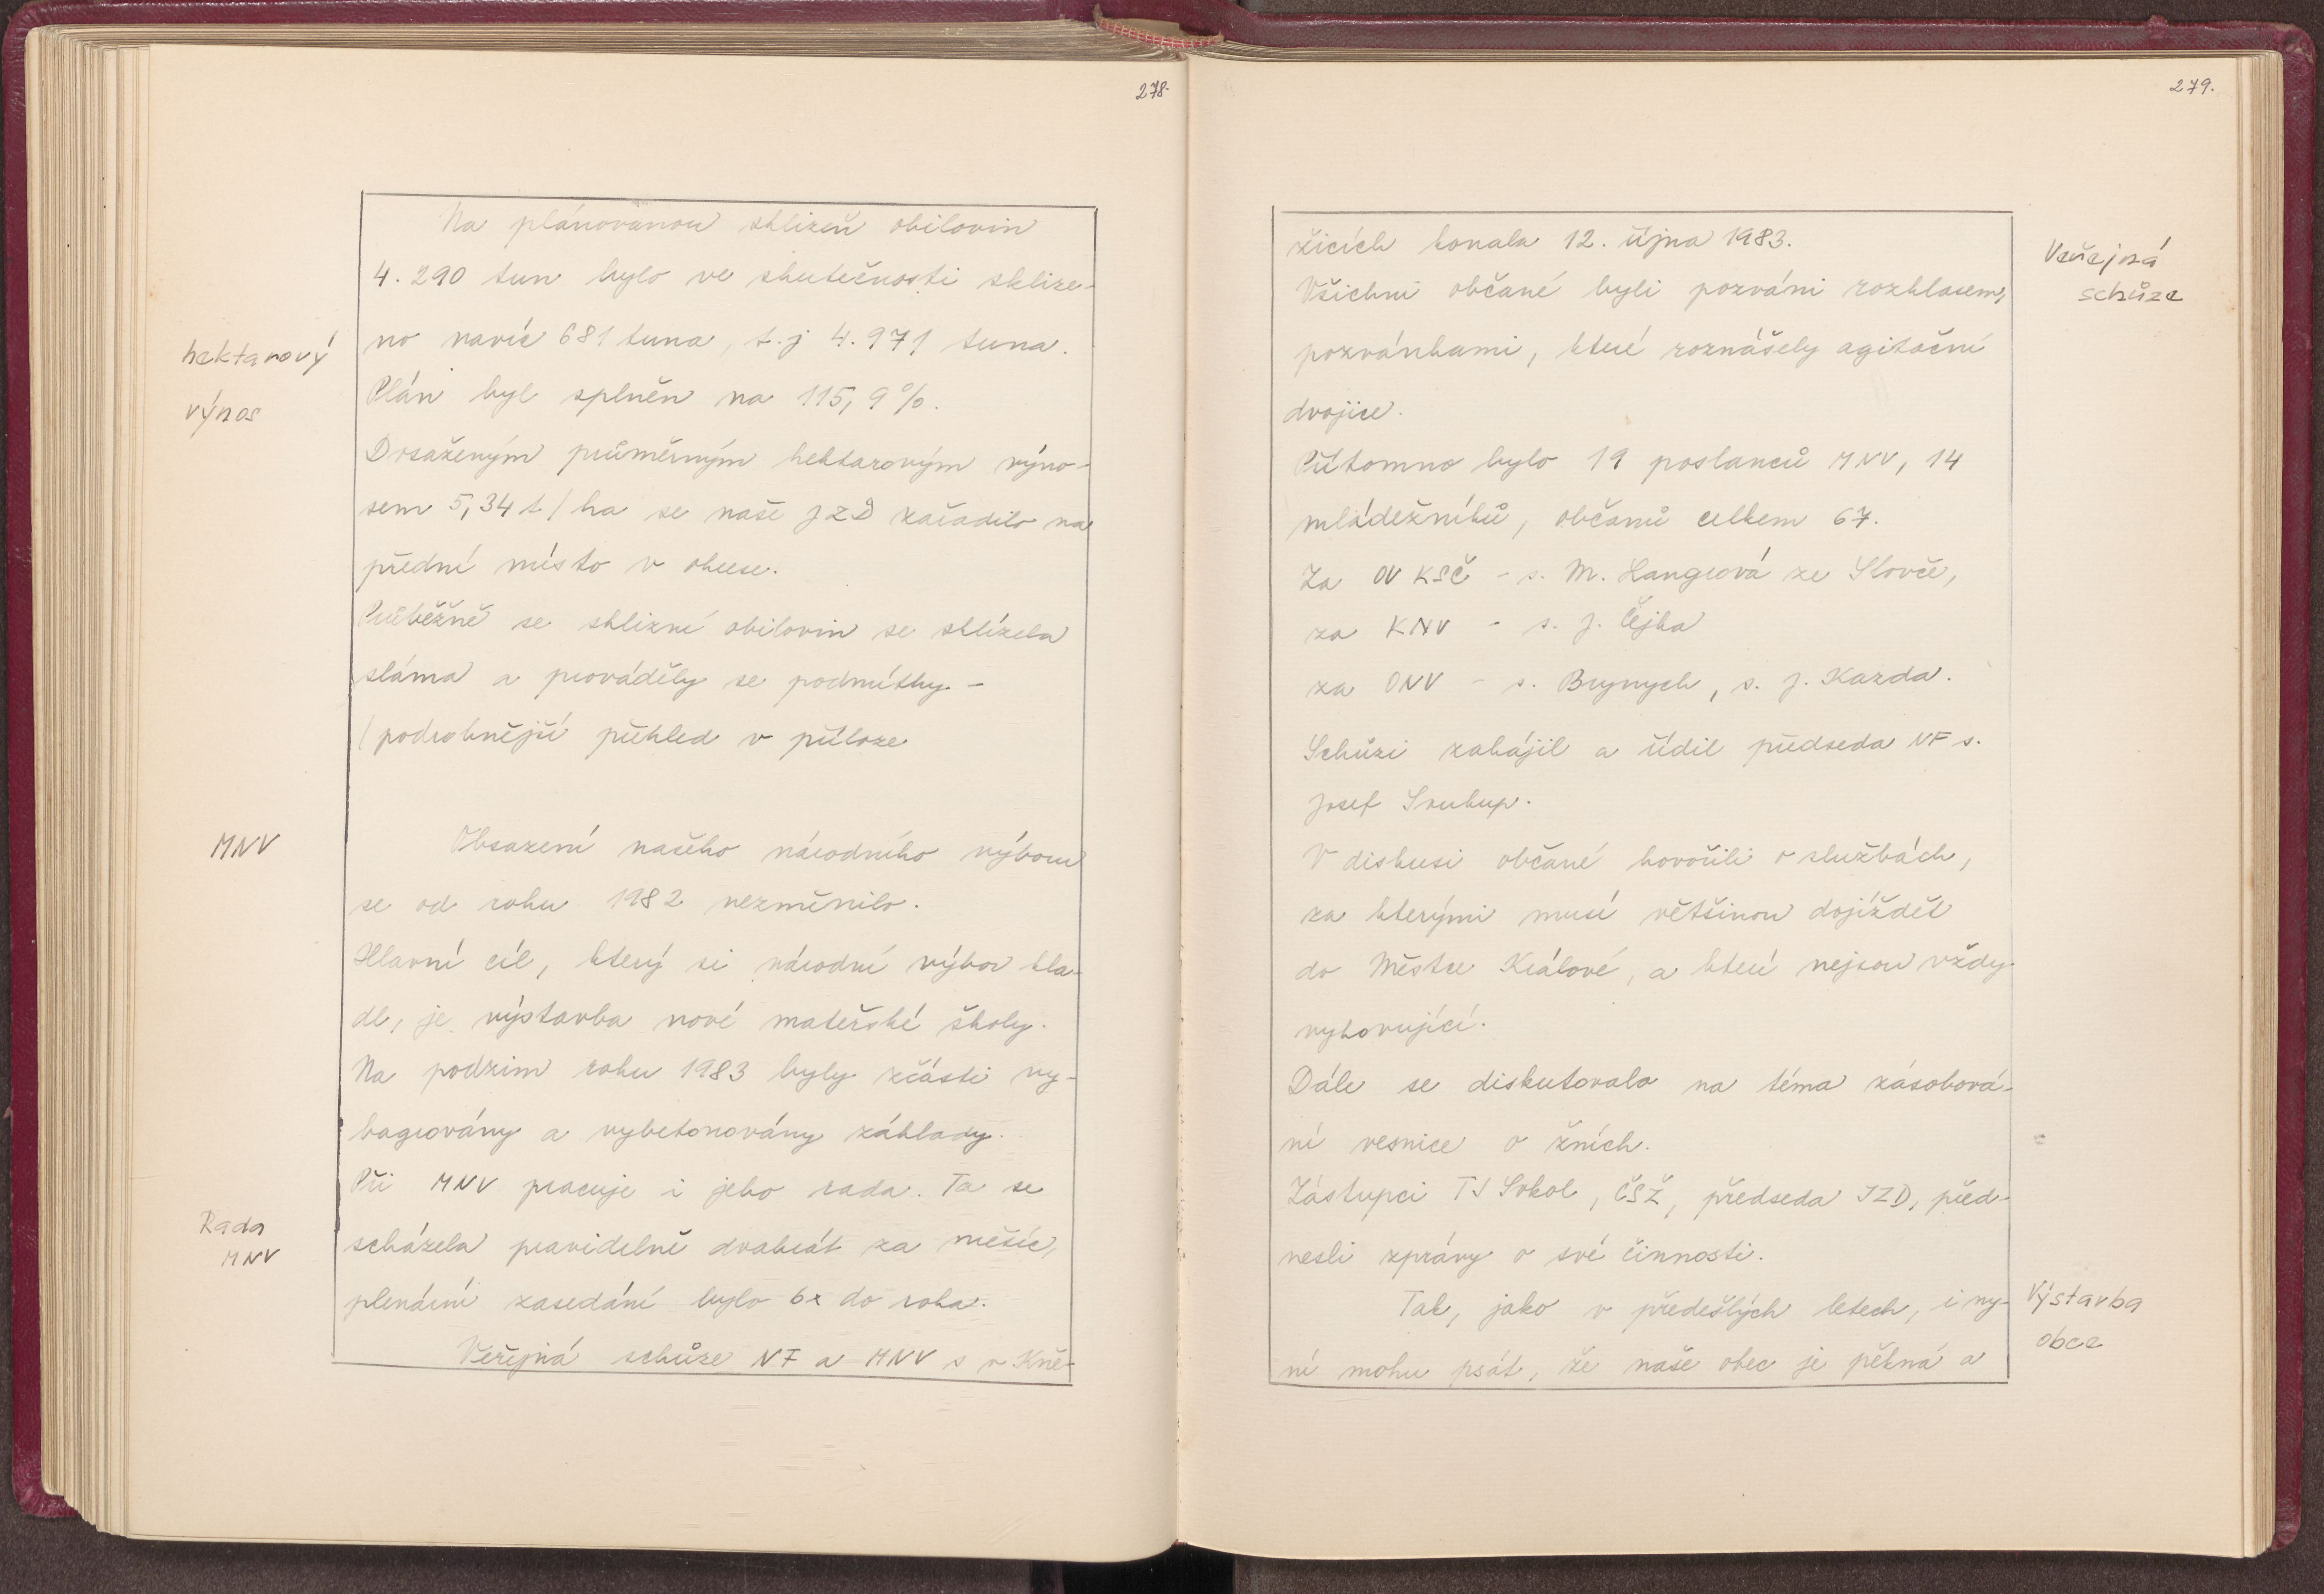 278.
Na plánovanou sklizeň obilovin
4.290 tun bylo ve skutečnosti sklize-
no navíc 681 tuna, t.j 4.971 tuna.
hektarový
výnos
Plán byl splněn na 115,9%.
Dosaženým průměrným hektarovým výno-
sem 5,34 t/ha se naše JZD zařadilo na
přední místo v okrese.
Průběžně se sklizní obilovin se sklízela
sláma a prováděly se podmítky -
/podrobnější přehled v příloze
MNV
Obsazení našeho národního výboru
se od roku 1982 nezměnilo.
Hlavní cíl, který si národní výbor kla-
dl, je výstavba nové mateřské školy.
Na podzim roku 1983 byly zčásti vy-
bagrovány a vybetonovány základy.
Při MNV pracuje i jeho rada. Ta se
Rada
MNV
scházela pravidelně dvakrát za měsíc,
plenární zasedání bylo 6x do roka.
Veřejná schůze NF a MNV s v Kně-
279.
žicích konala 12. října 1983.
Veřejná
schůze
Všichni občané byli pozváni rozhlasem,
pozvánkami, které roznášely agitační
dvojice.
Přítomno bylo 19 poslanců MNV, 14
mládežníků, občanů celkem 67.
Za OV KSČ - s. M. Hangrová ze Slovče,
za KNV - s. J. Čejka
za ONV - s. Brynych, s. J. Kazda.
Schůzi zahájil a řídil předseda NF s.
Josef Soukup.
V diskusi občané hovořili o službách,
za kterými musí většinou dojíždět
do Městce Králové, a které nejsou vždy
vyhovující.
Dále se diskutovalo na téma zásobová-
ní vesnice o žních.
Zástupci TJ Sokol, ČSŽ, předseda JZD, před-
nesli zprávy o své činnosti.
Tak, jako v předešlých letech, i ny-
Výstavba
obce
ní mohu psát, že naše obec je pěkná a